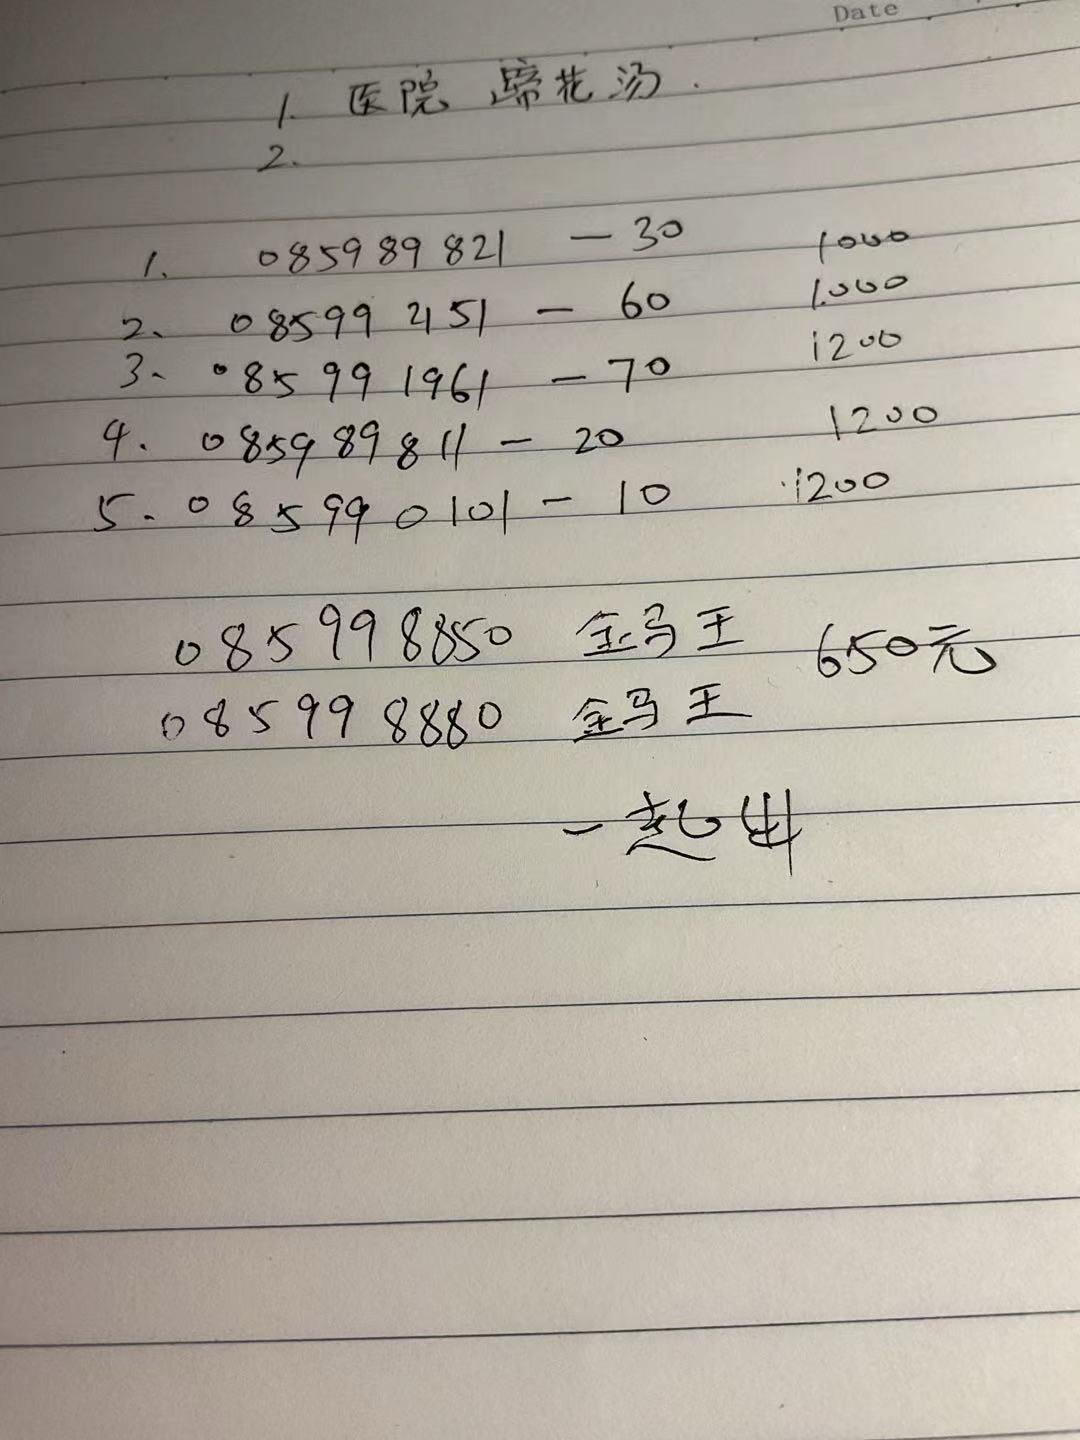 Date
1. 医院 蹄花汤.
2.
1. 085989821 — 30 1000
2. 085992151 — 60 1000
3. 085991961 — 70 1200
4. 085989811 — 20 1200
5. 085990101 — 10 1200
085998850 金马王 650元
085998880 金马王
一起出